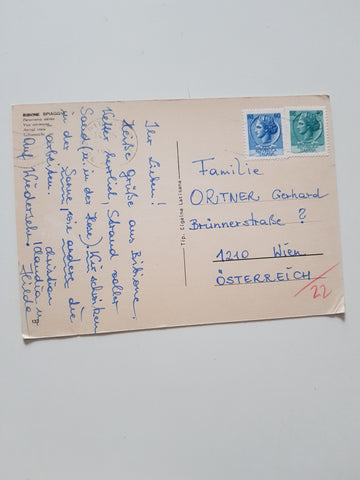 BIBIONE SPIAGGIA
Panorama aereo
Vue aérienne
Aerial view
Luftansicht
Ihr Lieben!
Heiße Grüße aus Bibione,
Wetter herrlich, Strand voller
Sand (u. in der Hose). Wir schwitzen
in der Sonne, wie andere die
arbeiten. Christian
Claudia u.
Auf Wiedersehn Hilde
Familie
ORTNER Gerhard
Brünnerstraße ?
1210 Wien
ÖSTERREICH
/22